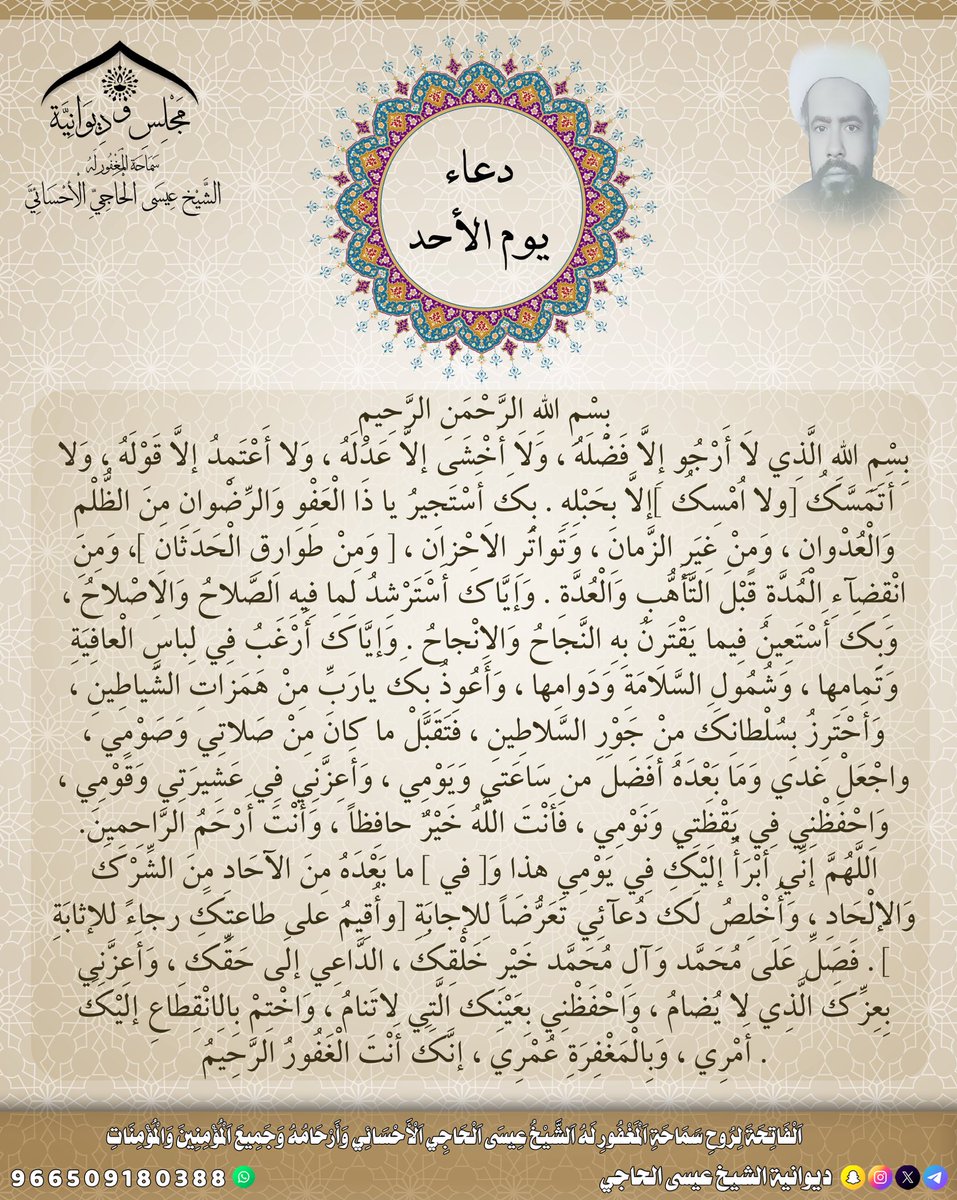 مَجْلِس وَدِيوَانِيَّة
سَمَاحَة المَغْفُورِ لَهُ
الشَّيْخ عِيسَى الْحَاجِيّ الْأَحْسَائِيّ
دعاء
يوم الأحد
بِسْمِ اللهِ الرَّحْمَنِ الرَّحِيمِ
بِسْمِ اللهِ الَّذِي لاَ أَرْجُو إِلاَّ فَضْلَهُ ، وَلاَ أخْشَى إلاَّ عَدْلَهُ ، وَلا أَعْتَمِدُ إلاَّ قَوْلَهُ ، وَلا
أتَمَسَّكُ [ولا اُمْسِكُ ]إلاَّ بِحَبْلِهِ . بِكَ أسْتَجِيرُ يا ذَا الْعَفْوِ وَالرِّضْوانِ مِنَ الظُّلْمِ
وَالْعُدْوانِ ، وَمِنْ غِيَرِ الزَّمانَ ، وَتَواتُرِ الاَحْزانِ ، [ وَمِنْ طَوَارِقِ الْحَدَثَانِ ]، وَمِنِ
انْقِضآءِ الْمُدَّةِ قَبْلَ التَّأَهُّبِ وَالْعُدَّةِ . وَإيَّاكَ أسْتَرْشِدُ لِما فِيهِ الصَّلاحُ وَالاِصْلاحُ ،
وَبِكَ أسْتَعِينُ فِيما يَقْتَرِنُ بِهِ النَّجَاحُ وَالاِنْجاحُ . وَإيَّاكَ أَرْغَبُ فِي لِباسِ الْعافِيَةِ
وَتَمامِها ، وَشُمُولِ السَّلامَةِ وَدَوامِها ، وَأَعُوذُ بِكَ يارَبِّ مِنْ هَمَزاتِ الشَّياطِينِ ،
وَأحْتَرِزُ بِسُلْطانِكَ مِنْ جَوْرِ السَّلاطِينِ ، فَتَقَبَّلْ ما كانَ مِنْ صَلاتِي وَصَوْمِي ،
واجْعَلْ غَدِي وَمَا بَعْدَهُ أفْضَلَ من سَاعَتِي وَيَوْمِي ، وَأعِزَّنِي فِي عَشِيرَتِي وَقَوْمِي ،
وَاحْفَظْنِي فِي يَقْظَتِي وَنَوْمِي ، فَأنْتَ اللَّهُ خَيْرٌ حافِظاً ، وَأنْتَ أرْحَمُ الرَّاحِمِينَ.
اَللَّهُمَّ إنِّي أبْرَأُ إلَيْكَ فِي يَوْمِي هذا وَ[ في ] ما بَعْدَهُ مِنَ الآحَادِ مِنَ الشِّرْكِ
وَالإلْحَادِ ، وَأُخْلِصُ لَكَ دُعآئِي تَعَرُّضَاً لِلإجابَةِ [وأُقِيمُ على طاعتِكَ رجاءً للإثابَةِ
]. فَصَلِّ عَلَى مُحَمَّد وَآلِ مُحَمَّد خَيْرِ خَلْقِكَ ، الدَّاعِي إلَى حَقِّكَ ، وَأعِزَّنِي
بِعِزِّكَ الَّذِي لا يُضامُ ، وَاحْفَظْنِي بِعَيْنِكَ الَّتِي لاتَنامُ ، وَاخْتِمْ بِالِانْقِطَاعِ إلَيْكَ
أمْرِي ، وَبِالْمَغْفِرَةِ عُمْرِي ، إنَّكَ أنْتَ الْغَفُورُ الرَّحِيمُ .
اَلْفَاتِحَة لِرُوحِ سَمَاحَةِ اَلْمَغْفُورِ لَهُ اَلشَّيْخُ عِيسَى اَلْحَاجِي اَلْأَحْسَائِي وَأَرْحَامُهُ وَجَمِيعَ اَلْمُؤْمِنِينَ وَالْمُؤْمِنَاتِ
ديوانية الشيخ عيسى الحاجي
966509180388